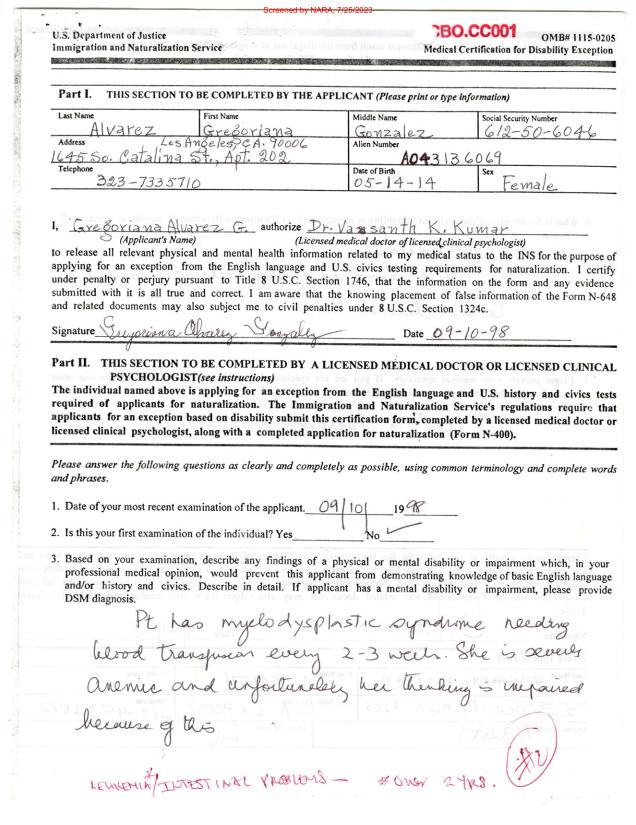 Screened by NARA, 7/25/2023
U.S. Department of Justice
Immigration and Naturalization Service
BO.CC001
OMB# 1115-0205
Medical Certification for Disability Exception
Part I. THIS SECTION TO BE COMPLETED BY THE APPLICANT (Please print or type information)
Last Name First Name Middle Name Social Security Number
Alvarez Gregoriana Gonzalez 612-50-6046
Address Los Angeles, CA. 90006 Alien Number
1645 So. Catalina St., Apt. 202 A043136069
Telephone Date of Birth Sex
323-7335710 05-14-14 Female
I, Gregoriana Alvarez G. authorize Dr. Vassanth K. Kumar
(Applicant's Name) (Licensed medical doctor of licensed clinical psychologist)
to release all relevant physical and mental health information related to my medical status to the INS for the purpose of
applying for an exception from the English language and U.S. civics testing requirements for naturalization. I certify
under penalty or perjury pursuant to Title 8 U.S.C. Section 1746, that the information on the form and any evidence
submitted with it is all true and correct. I am aware that the knowing placement of false information of the Form N-648
and related documents may also subject me to civil penalties under 8 U.S.C. Section 1324c.
Signature Gregoriana Alvarez Gonzalez Date 09-10-98
Part II. THIS SECTION TO BE COMPLETED BY A LICENSED MEDICAL DOCTOR OR LICENSED CLINICAL
PSYCHOLOGIST(see instructions)
The individual named above is applying for an exception from the English language and U.S. history and civics tests
required of applicants for naturalization. The Immigration and Naturalization Service's regulations require that
applicants for an exception based on disability submit this certification form, completed by a licensed medical doctor or
licensed clinical psychologist, along with a completed application for naturalization (Form N-400).
Please answer the following questions as clearly and completely as possible, using common terminology and complete words
and phrases.
1. Date of your most recent examination of the applicant. 09/10/ 1998
2. Is this your first examination of the individual? Yes No ✓
3. Based on your examination, describe any findings of a physical or mental disability or impairment which, in your
professional medical opinion, would prevent this applicant from demonstrating knowledge of basic English language
and/or history and civics. Describe in detail. If applicant has a mental disability or impairment, please provide
DSM diagnosis.
Pt has myelodysplastic syndrome needing
blood transfusion every 2-3 weeks. She is severely
anemic and unfortunately her thinking is impaired
because of this
#2
LEUKEMIA*/INTESTINAL PROBLEMS — # OVER 2 YRS.